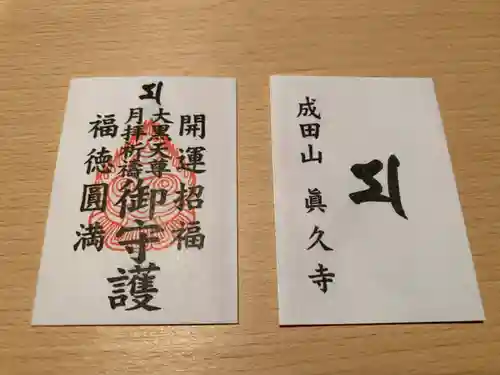 開運招福
大黒天尊
月拝祈禱
御守護
福徳圓満
成田山 眞久寺